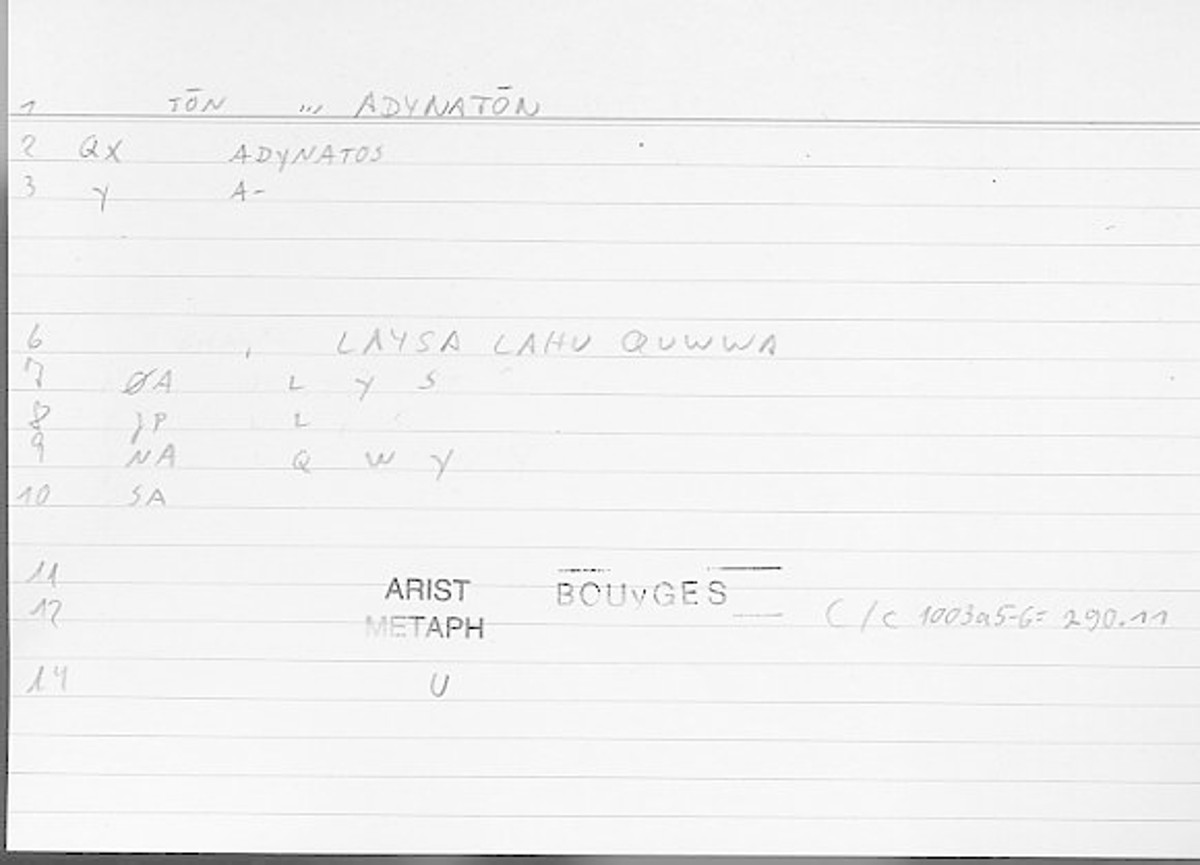 1 TŌN ... ADYNATŌN
2 QX ADYNATOS
3 Y A-
6 , LAYSA LAHU QUWWA
7 ØA L Y S
8 JP L
9 NA Q W Y
10 SA
11 ARIST BOUYGES
12 METAPH C/c 1003a5-6= 290.11
14 U